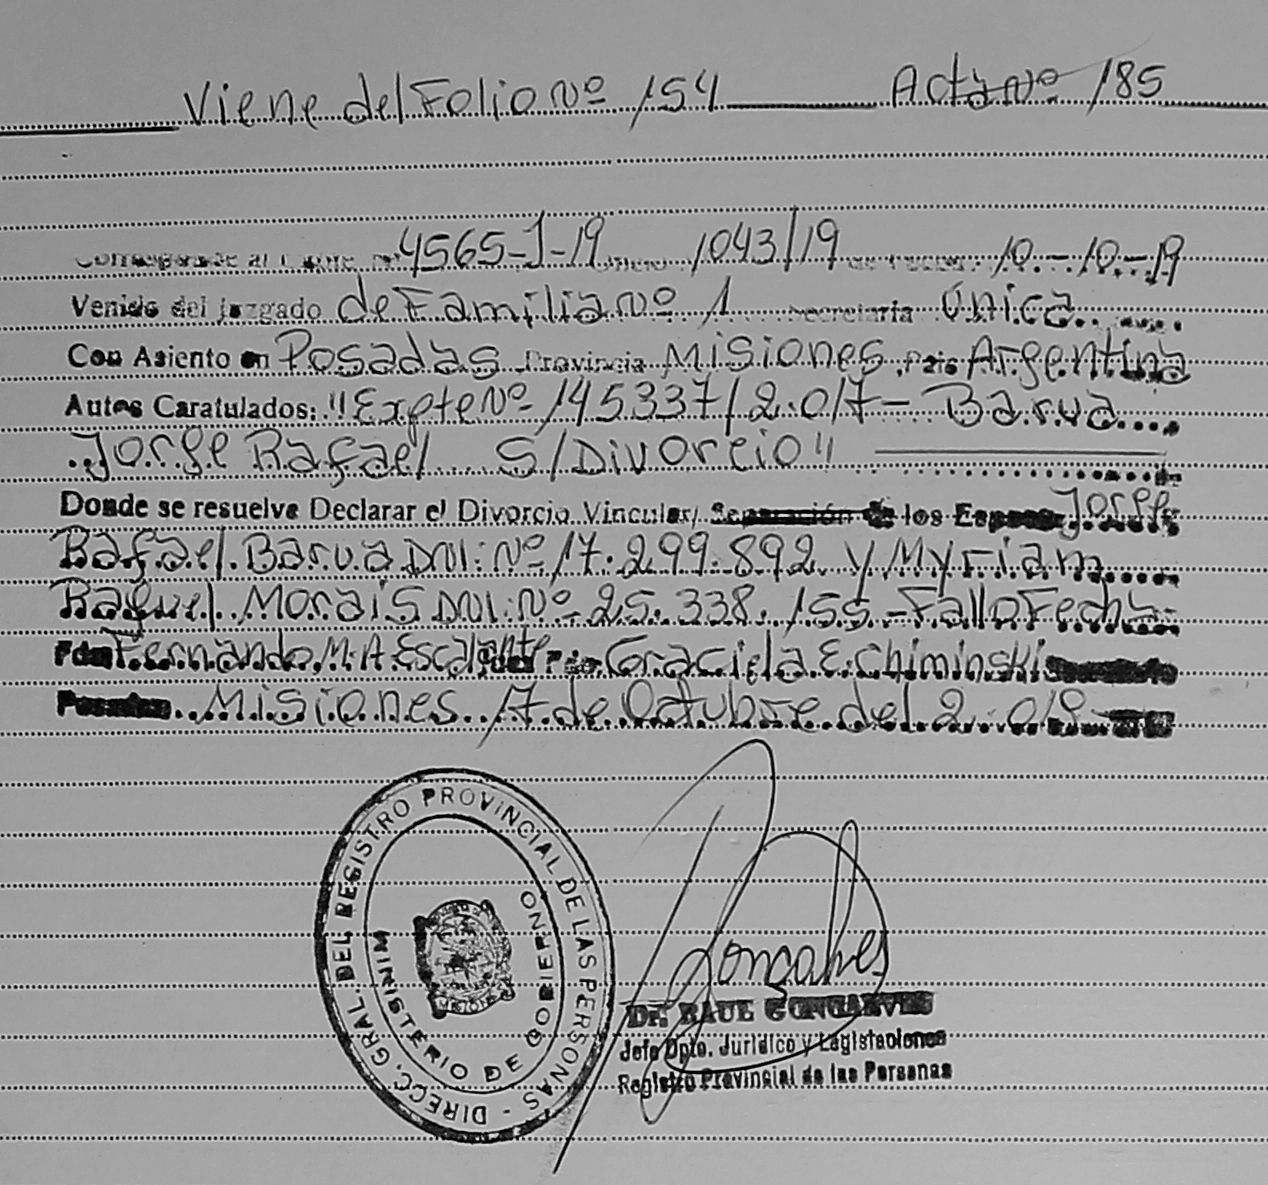 Viene del Folio Nº 154 Acta Nº 185
Corresponde al Expte. Nº 4565-J-19 Oficio 1043/19 de Fecha: 10-10-19
Venido del Juzgado de Familia Nº 1 Secretaria Única
Con Asiento en Posadas Provincia Misiones Pais Argentina
Autos Caratulados: "Expte Nº 145337/2.017- Barva
Jorge Rafael S/Divorcio"
Donde se resuelve Declarar el Divorcio Vincular/ Separación de los Esposos Jorge
Rafael Barva DNI: Nº 17.299.892 y Myriam
Raquel Morais DNI: Nº 25.338.155.-Fallo Fecha
Fdo Fernando M.A. Escalante Juez Fdo. Graciela E. Chiminski Secretario
Posadas Misiones 17 de Octubre del 2.019
DIRECC. GRAL. DEL REGISTRO PROVINCIAL DE LAS PERSONAS -
MINISTERIO DE GOBIERNO
Goncalves
Dr. RAUL GONCALVES
Jefe Dpto. Jurídico y Legislaciones
Registro Provincial de las Personas